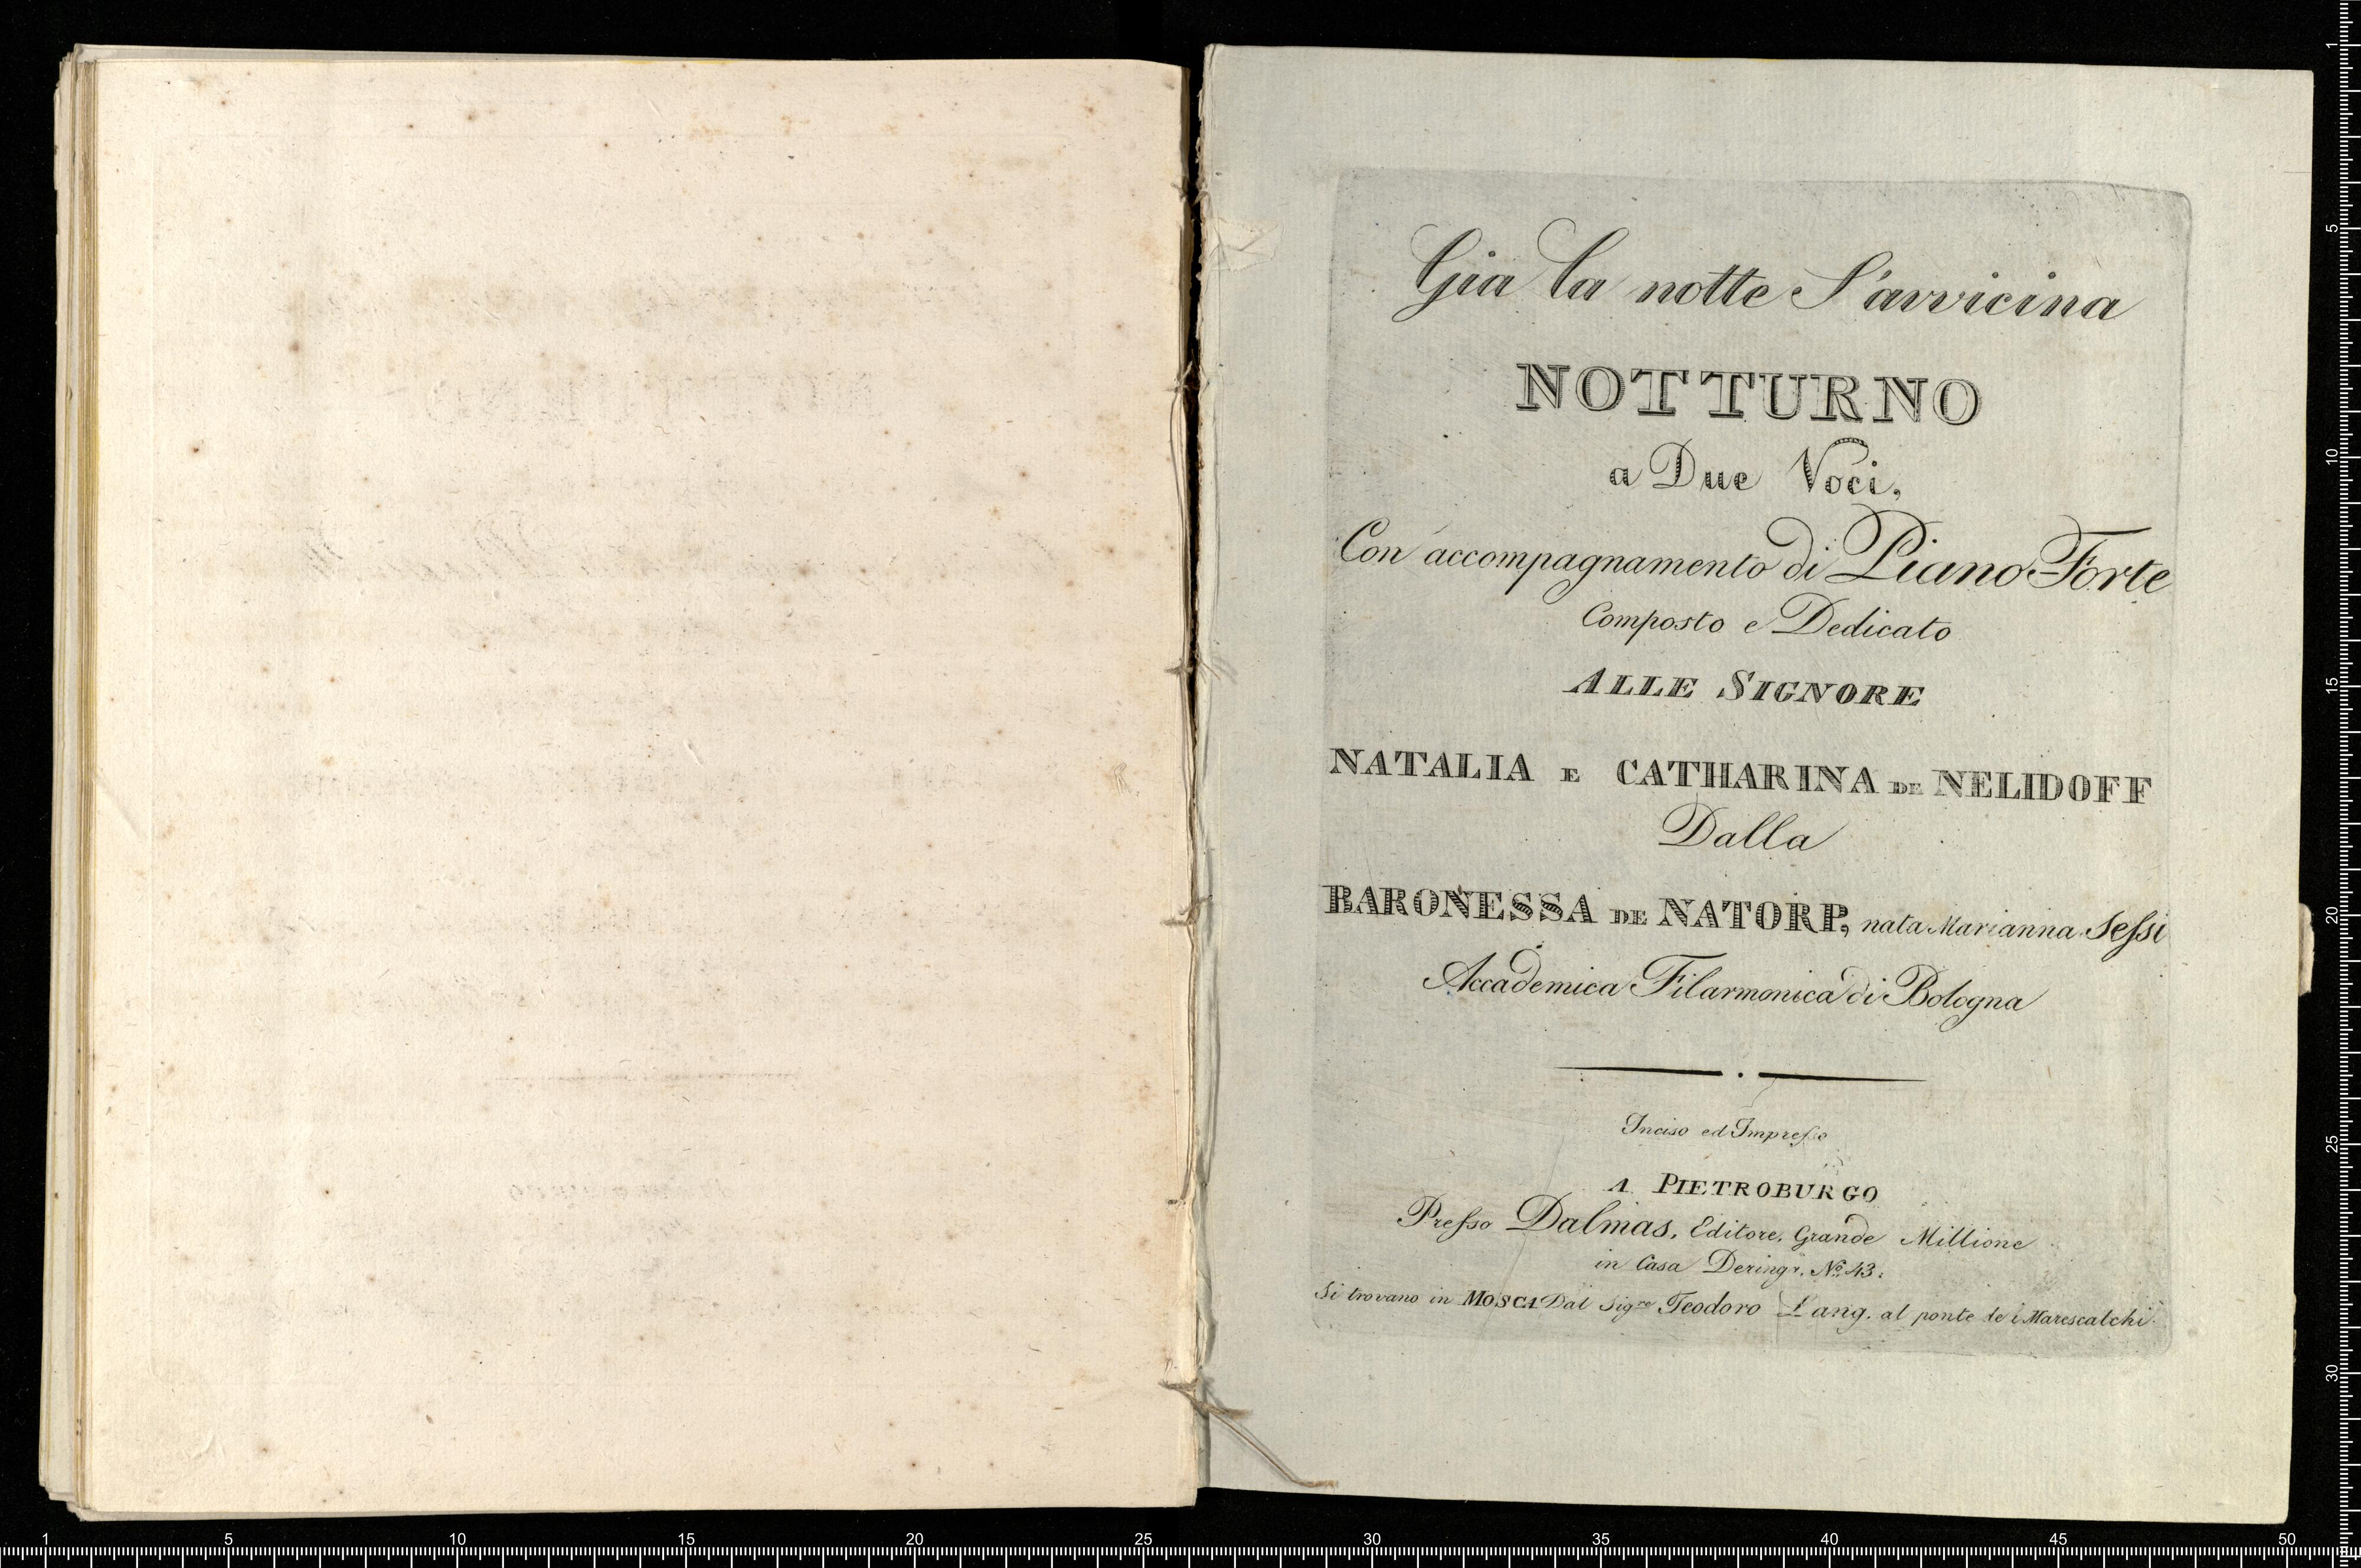 Gia la notte S'avvicina
NOTTURNO
a Due Voci,
Con accompagnamento di Piano-Forte
Composto e Dedicato
ALLE SIGNORE
NATALIA E CATHARINA DE NELIDOFF
Dalla
BARONESSA DE NATORP, nata Marianna Seſsi
Accademica Filarmonica di Bologna
Inciso ed Impreſso
A PIETROBURGO
Preſso Dalmas, Editore, Grande Millione
in Casa Deringr. No. 43.
Si trovano in MOSCA Dal Sigre Teodoro Lang. al ponte de i Marescalchi
1 5 10 15 20 25 30 35 40 45 50
1
5
10
15
20
25
30